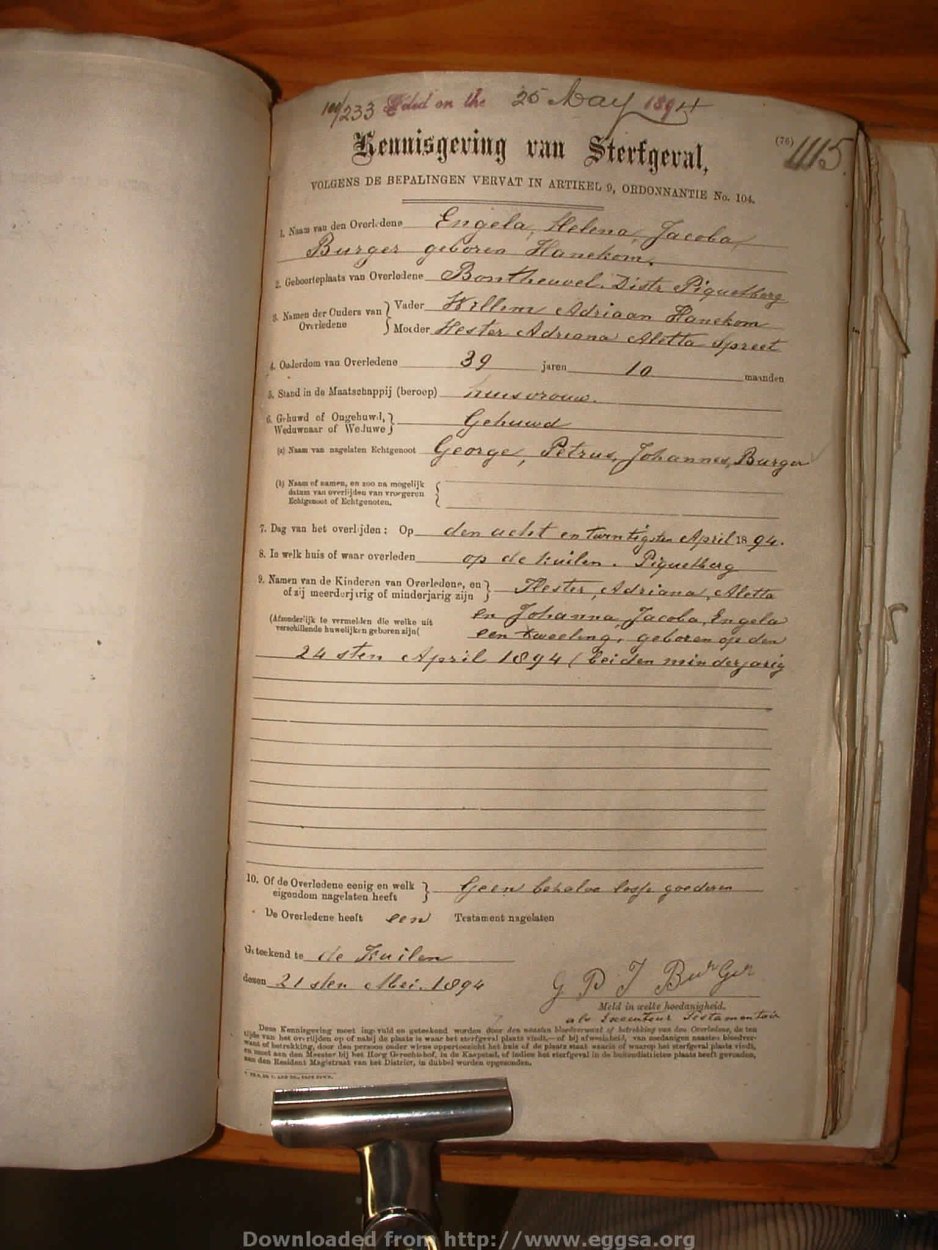 100/233 Filed on the 25 May 1894
Kennisgeving van Sterfgeval,
(76) 1115.
VOLGENS DE BEPALINGEN VERVAT IN ARTIKEL 9, ORDONNANTIE No. 104.
1. Naam van den Overledene Engela, Helena, Jacoba,
Burger geboren Hanekom.
2. Geboorteplaats van Overledene Bontheuvel. Distr Piquetberg
3. Namen der Ouders van Overledene } Vader Willem Adriaan Hanekom
Moeder Hester Adriana Aletta Spreet
4. Ouderdom van Overledene 39 jaren 10 maanden
5. Stand in de Maatschappij (beroep) huisvrouw.
6. Gehuwd of Ongehuwd, Weduwnaar of Weduwe } Gehuwd
(a) Naam van nagelaten Echtgenoot George, Petrus, Johannes, Burger
(b) Naam of namen, en zoo na mogelijk
datum van overlijden van vroegeren
Echtgenoot of Echtgenoten. {
7. Dag van het overlijden: Op den acht en twintigsten April 1894.
8. In welk huis of waar overleden op de kuilen. Piquetberg
9. Namen van de Kinderen van Overledene, en
of zij meerderjarig of minderjarig zijn } Hester, Adriana, Aletta
(Afzonderlijk te vermelden die welke uit
verschillende huwelijken geboren zijn( en Johanna, Jacoba, Engela
een tweeling, geboren op den
24 sten April 1894 (beiden minderjarig
10. Of de Overledene eenig en welk
eigendom nagelaten heeft } Geen behalve losse goederen
De Overledene heeft een Testament nagelaten
Geteekend te de Kuilen
dezen 21 sten Mei. 1894
G P J Burger
Meld in welke hoedanigheid.
als Executeur Testamentair
Deze Kennisgeving moet ingevuld en geteekend worden door den naasten bloedverwant of betrekking van den Overledene, de ten
tijde van het overlijden op of nabij de plaats is waar het sterfgeval plaats vindt,—of bij afwezigheid, van zoodanigen naasten bloedver-
want of betrekking, door den persoon onder wiens oppertoezicht het huis of de plaats staat waarin of waarop het sterfgeval plaats vindt,
en moet aan den Meester bij het Hoog Gerechtshof, in de Kaapstad, of indien het sterfgeval in de buitendistricten plaats heeft gevonden,
aan den Resident Magistraat van het District, in dubbel worden opgezonden.
Downloaded from http://www.eggsa.org